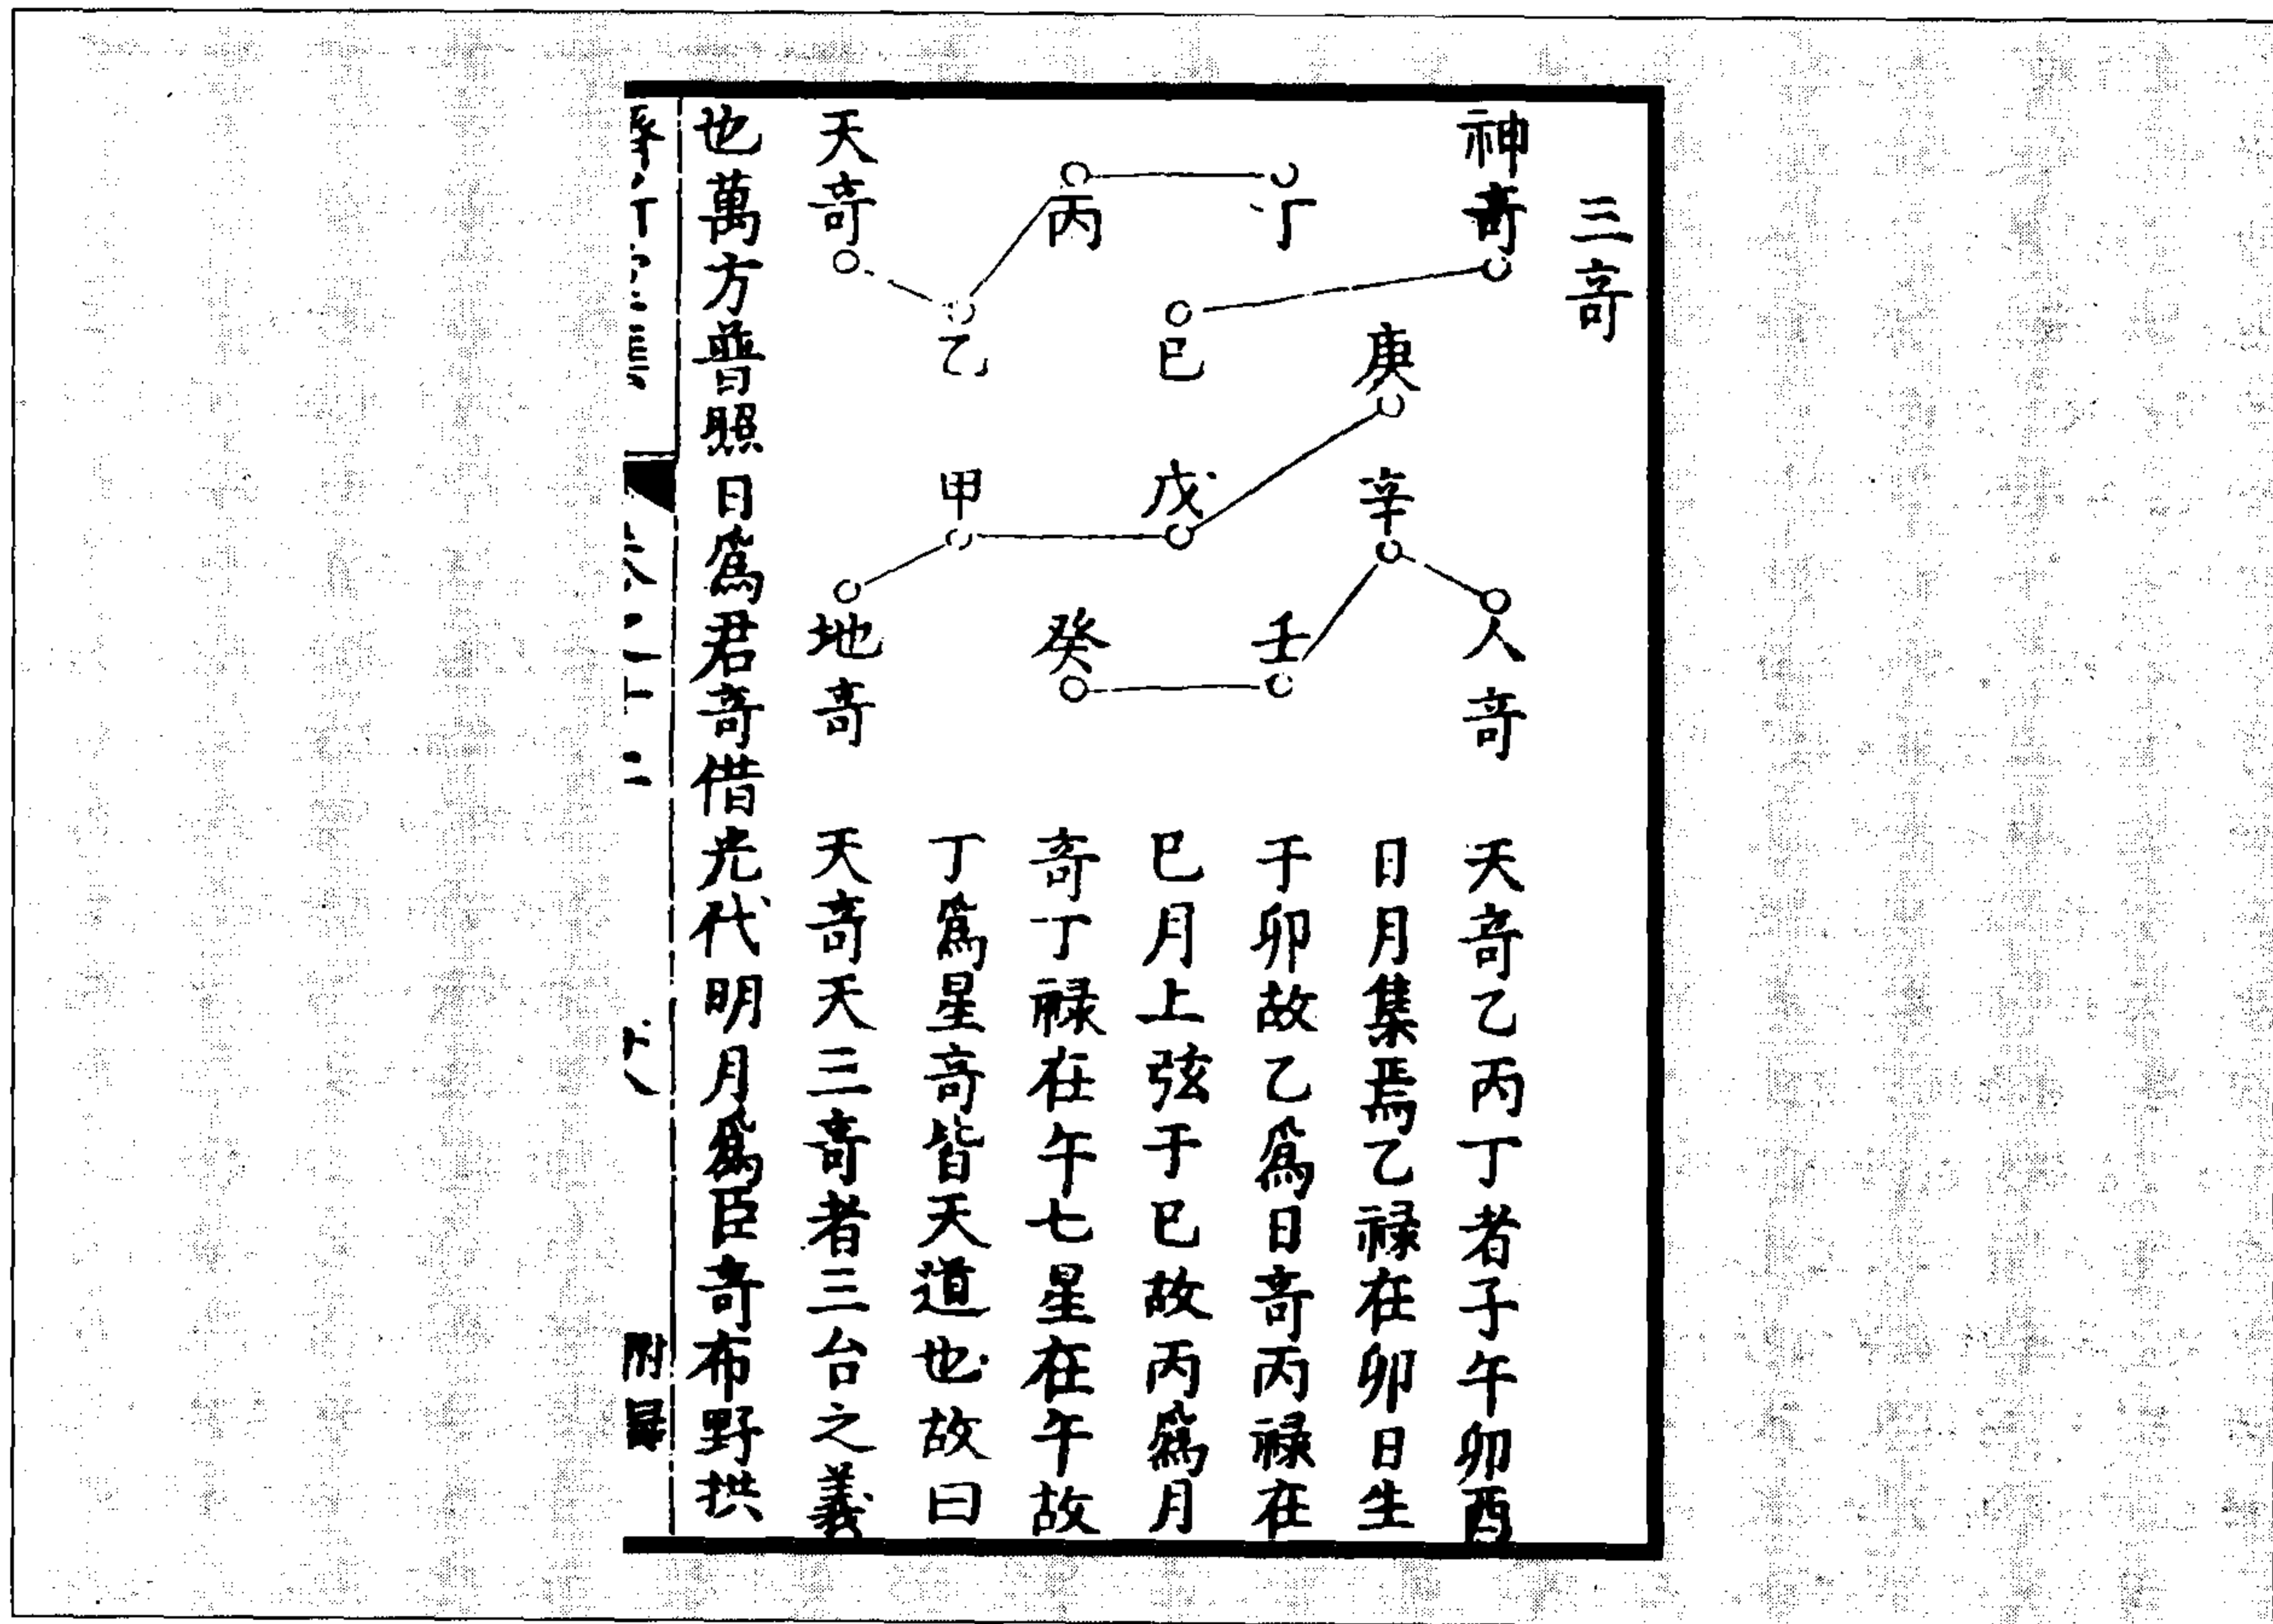 三奇
神奇
丁
丙
天奇
乙
巳
庚
辛
戊
甲
人奇
壬
癸
地奇
天奇乙丙丁者子午卯酉
日月集焉乙禄在卯日生
于卯故乙爲日奇丙禄在
巳月上弦于巳故丙爲月
奇丁禄在午七星在午故
丁爲星奇皆天道也故曰
天奇天三奇者三台之義
也萬方普照日爲君奇借光代明月爲臣奇布野拱
附錄